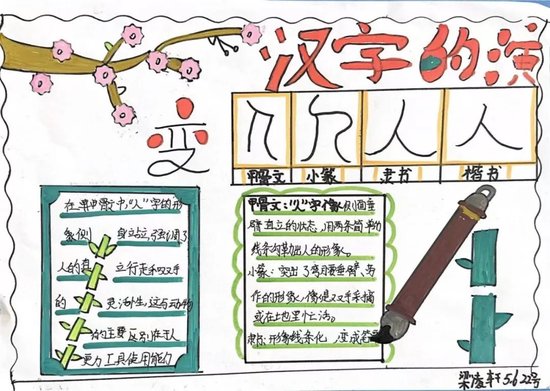 汉字的演
变
甲骨文 小篆 隶书 楷书
在甲骨文中，"人"字的形
象侧 身站立，强调了
人的直 立行走和双手
的 灵活性，这与动物
的主要区别在于人
更为工具使用能力
甲骨文："人"字像人侧面垂
臂直立的状态，用两条简单的
线条勾勒出人的形象。
小篆：突出了弯腰垂臂、劳
作的形象，像很双手采摘
或在上也里忙活。
隶书：形像线条化，变成笔画
梁凌轩 562号